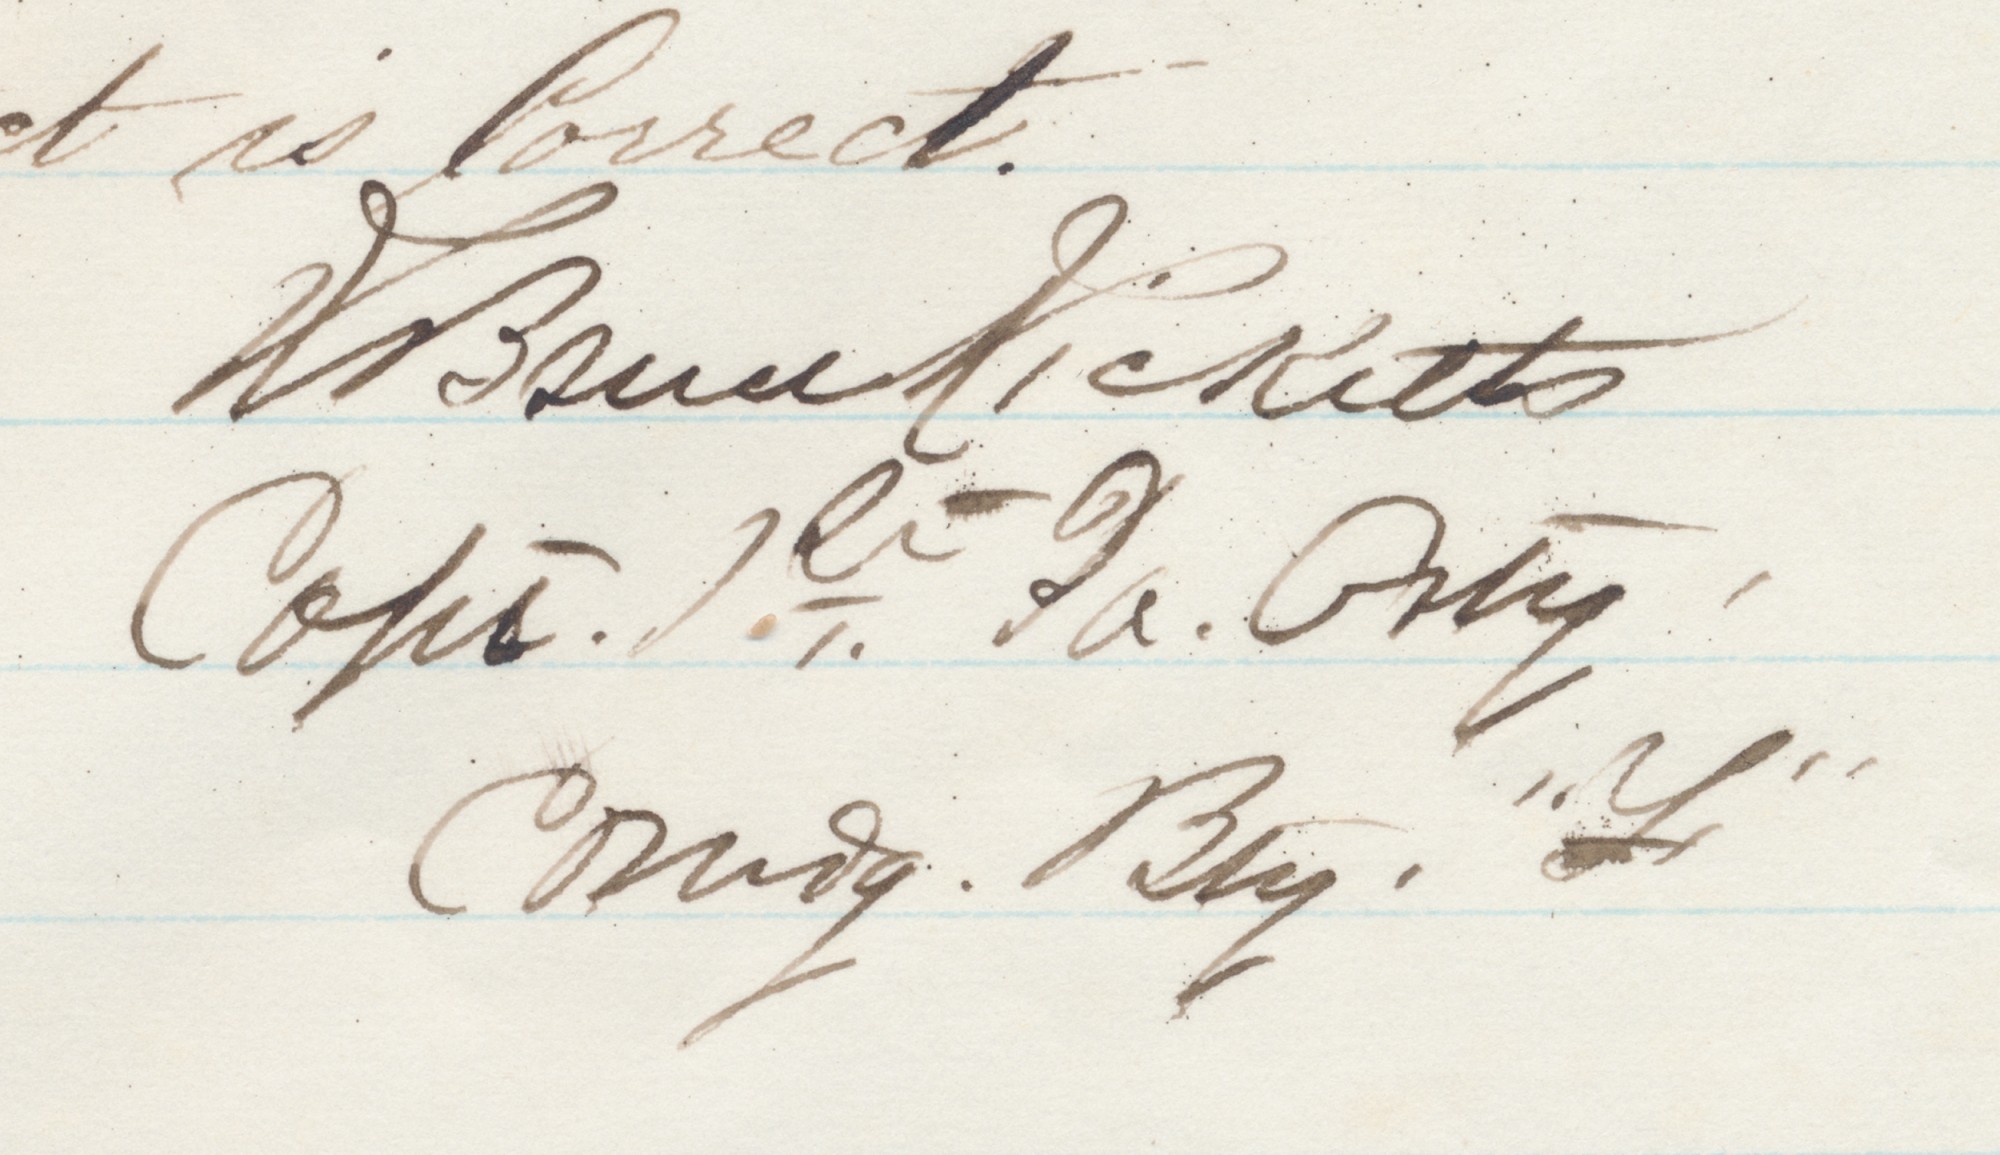 ct is Correct.
R Bruce Ricketts
Capt. 1st. Lt Pa. Arty.
Comdg. Bty. "F"